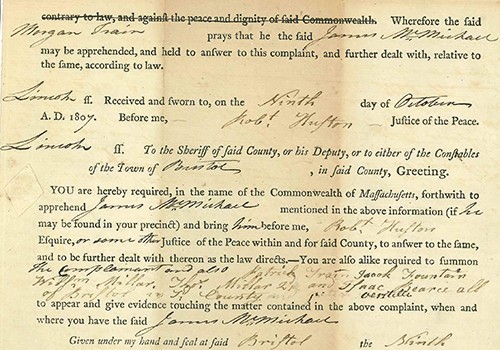 contrary to law, and against the peace and dignity of said Commonwealth. Wherefore the said
Morgan Train prays that he the said James McMichael
may be apprehended, and held to answer to this complaint, and further dealt with, relative to
the same, according to law.
Lincoln ss. Received and sworn to, on the Ninth day of October
A. D. 1807. Before me, Robt. Huston Justice of the Peace.
Lincoln ss. To the Sheriff of said County, or his Deputy, or to either of the Constables
of the Town of Bristol, in said County, Greeting.
YOU are hereby required, in the name of the Commonwealth of Massachusetts, forthwith to
apprehend James McMichael mentioned in the above information (if he
may be found in your precinct) and bring him before me, Robt. Huston
Esquire, or some other Justice of the Peace within and for said County, to answer to the same,
and to be further dealt with thereon as the law directs.—You are also alike required to summon
the complainant and also Patrick Train Jacob Fountain
Millar, Millar and Isaac Bearce all
of Bristol in County and
to appear and give evidence touching the matter contained in the above complaint, when and
where you have the said James McMichael
Given under my hand and seal at said Bristol the Ninth